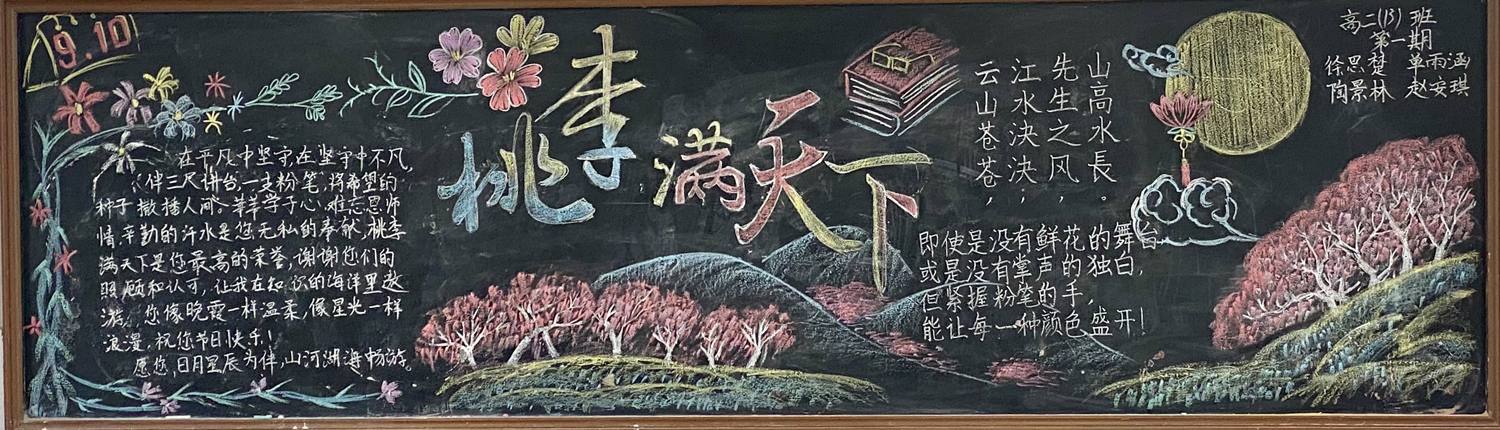 9.10
在平凡中坚守,在坚守中不凡,
伴三尺讲台,一支粉笔,将希望的
种子撒播人间。莘莘学子心,难忘恩师
情,辛勤的汗水是您无私的奉献,桃李
满天下是您最高的荣誉,谢谢您们的
照顾和认可,让我在知识的海洋里遨
游。您像晚霞一样温柔,像星光一样
浪漫,祝您节日快乐!
愿您,日月星辰为伴,山河湖海畅游。
桃李满天下
云山苍苍,
江水泱泱,
先生之风,
山高水長。
即使是没有鲜花的舞台,
或是没有掌声的独白,
但紧握粉笔的手,
能让每一种颜色盛开!
高二(13)班
第一期
徐思楚 单雨涵
陶景林 赵安琪